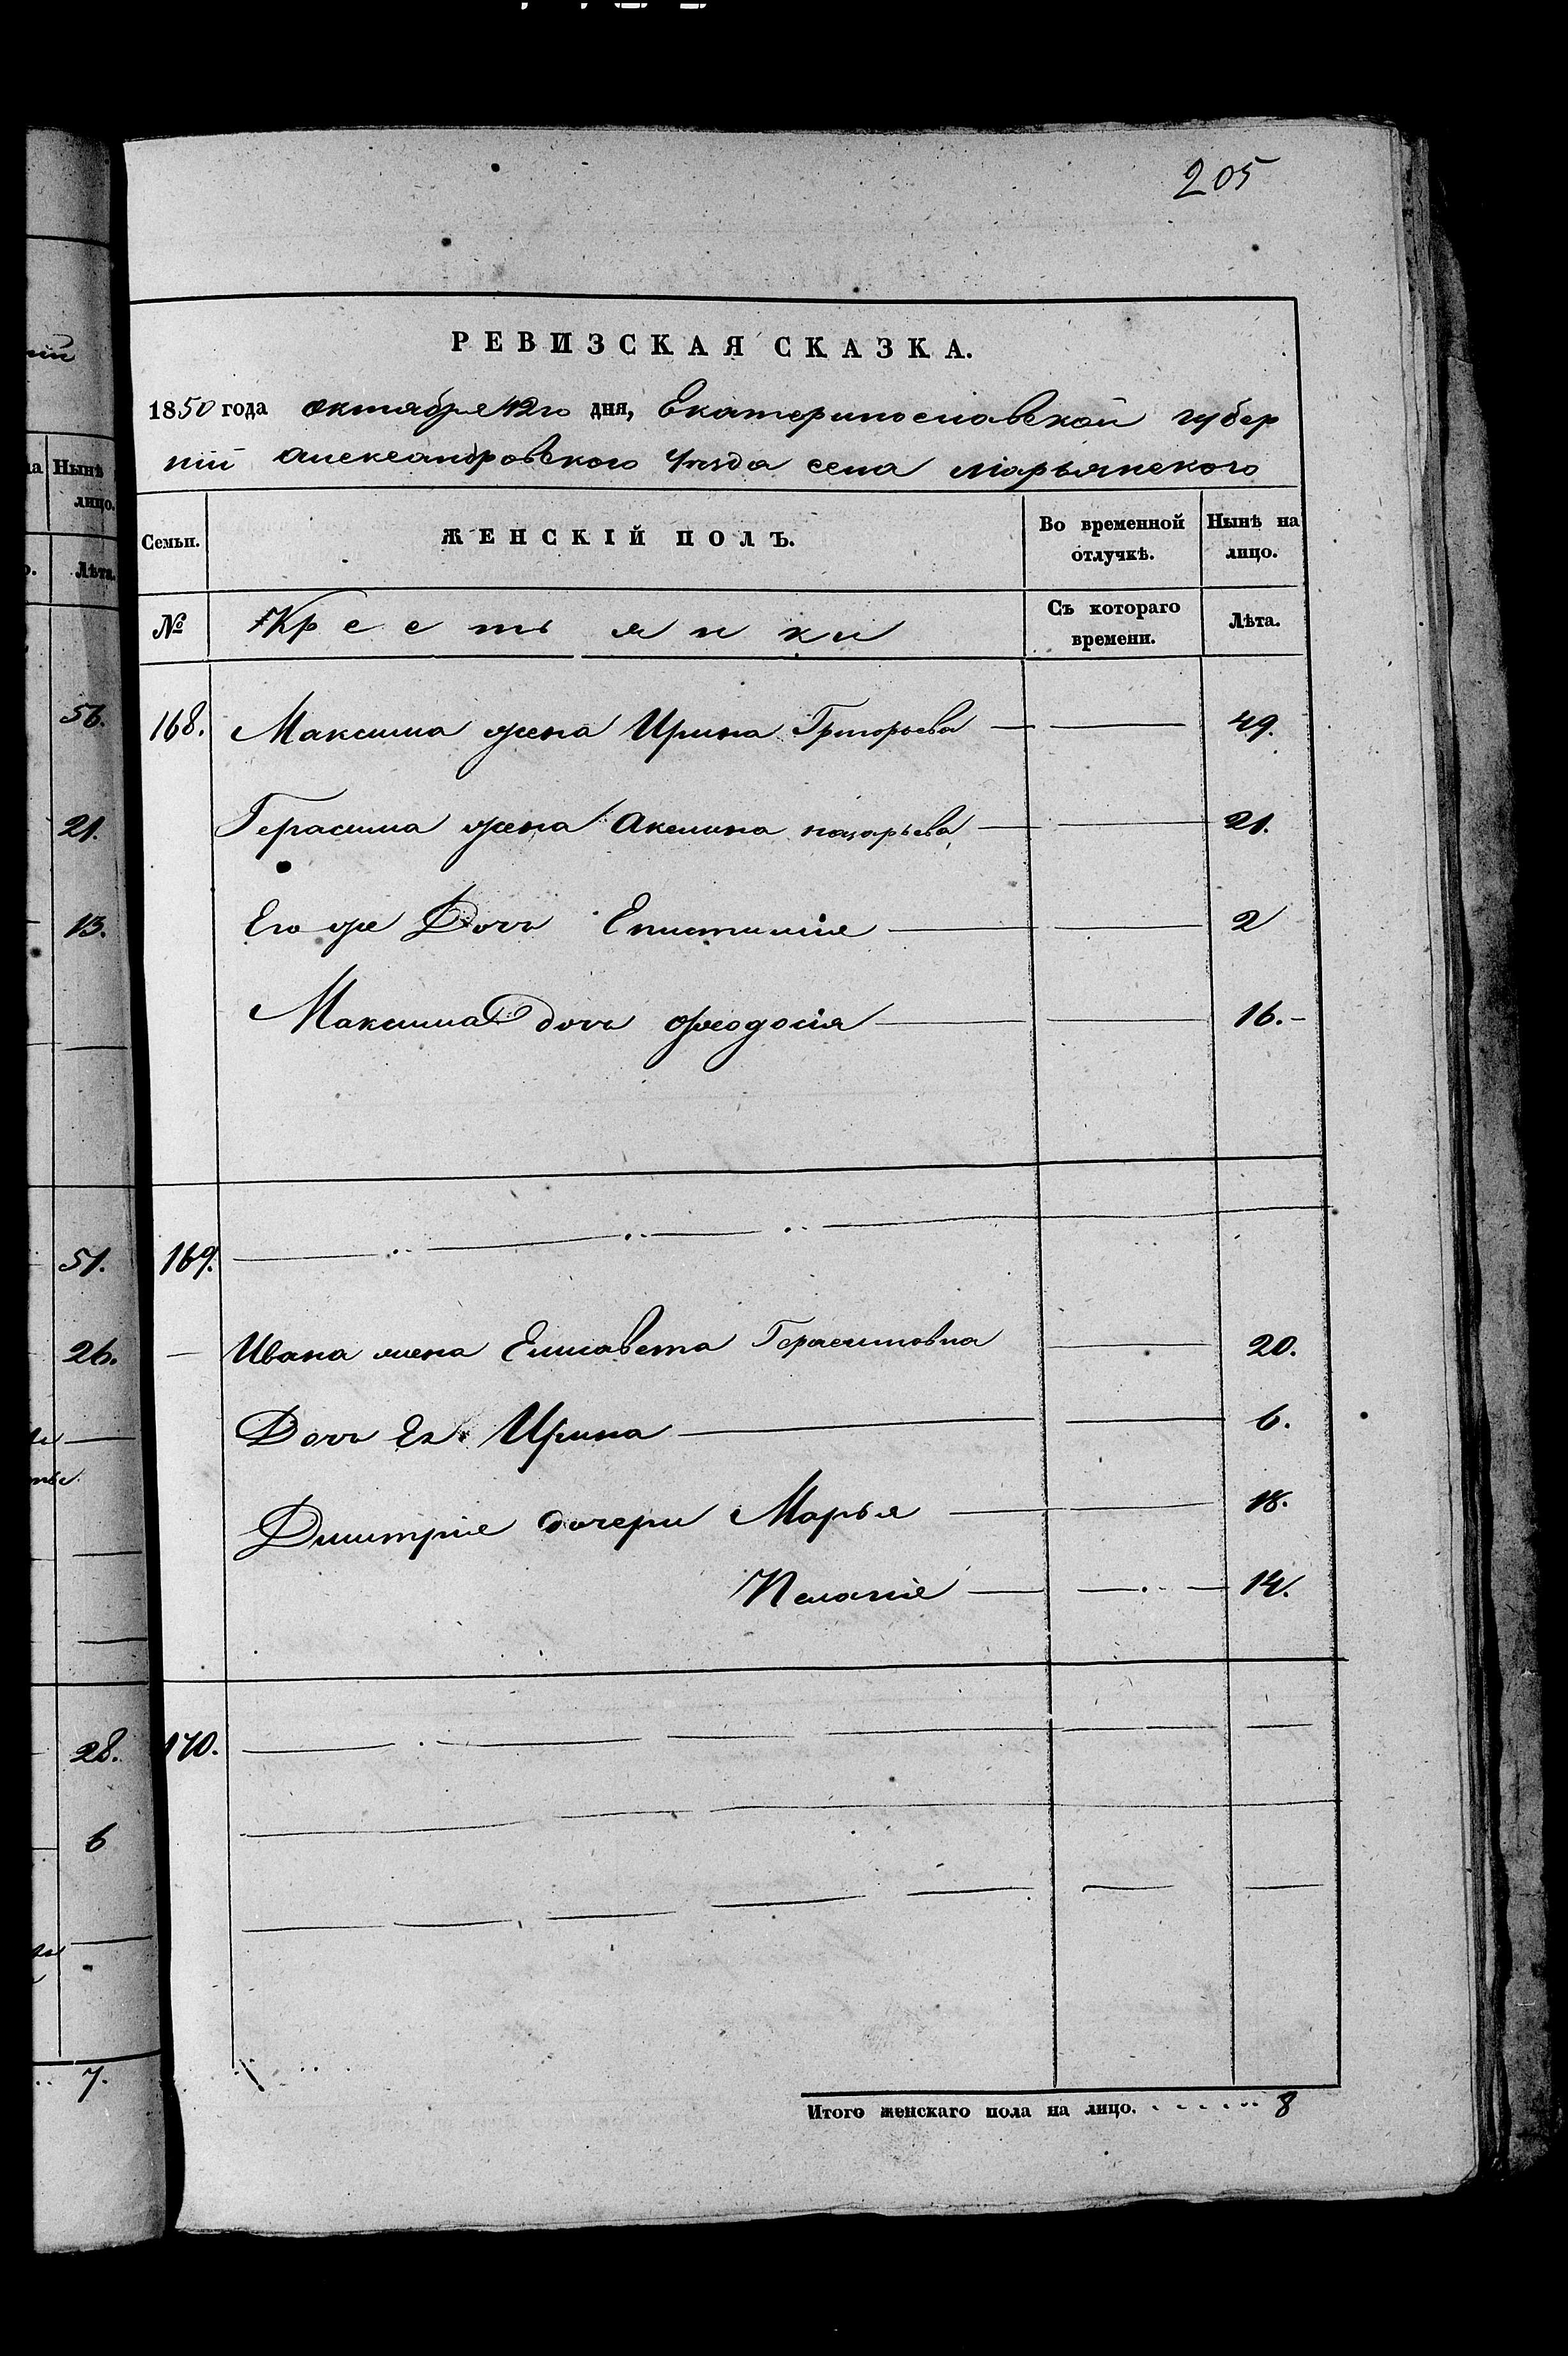 205
РЕВИЗСКАЯ СКАЗКА.
1850 года октября 12го дня, Екатеринославской губер
нiи Александровского Уезда села Марьянского
Семьи. ЖЕНСКIЙ ПОЛЪ. Во временной отлучкѣ. Нынѣ на лицо.
№ Крестьянки Съ котораго времени. Лѣта.
168. Максима жена Ирина Григорьева 49.
Герасима жена Акелина назарьева 21.
Его же Дочь Епистимия 2
Максима дочь феодосiя 16.
169.
Ивана жена Елисавета Герасимовна 20.
Дочь Ея Ирина 6.
Дмитрiя дочери Марья 18.
Пелагiя 14.
170.
Итого женскаго пола на лицо. 8
Нынѣ лицо.
Лѣта.
56.
21.
13.
51.
26.
28.
6
7.